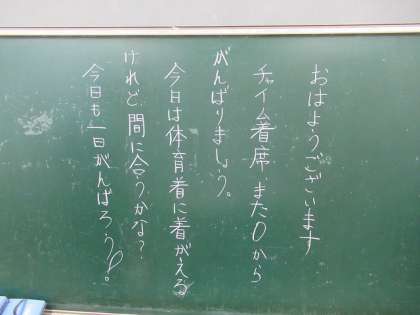 おはようございます
チャイム着席、また0から
がんばりましょう。
今日は体育着に着がえる
けれど、間に合うかな？
今日も一日がんばろう!。